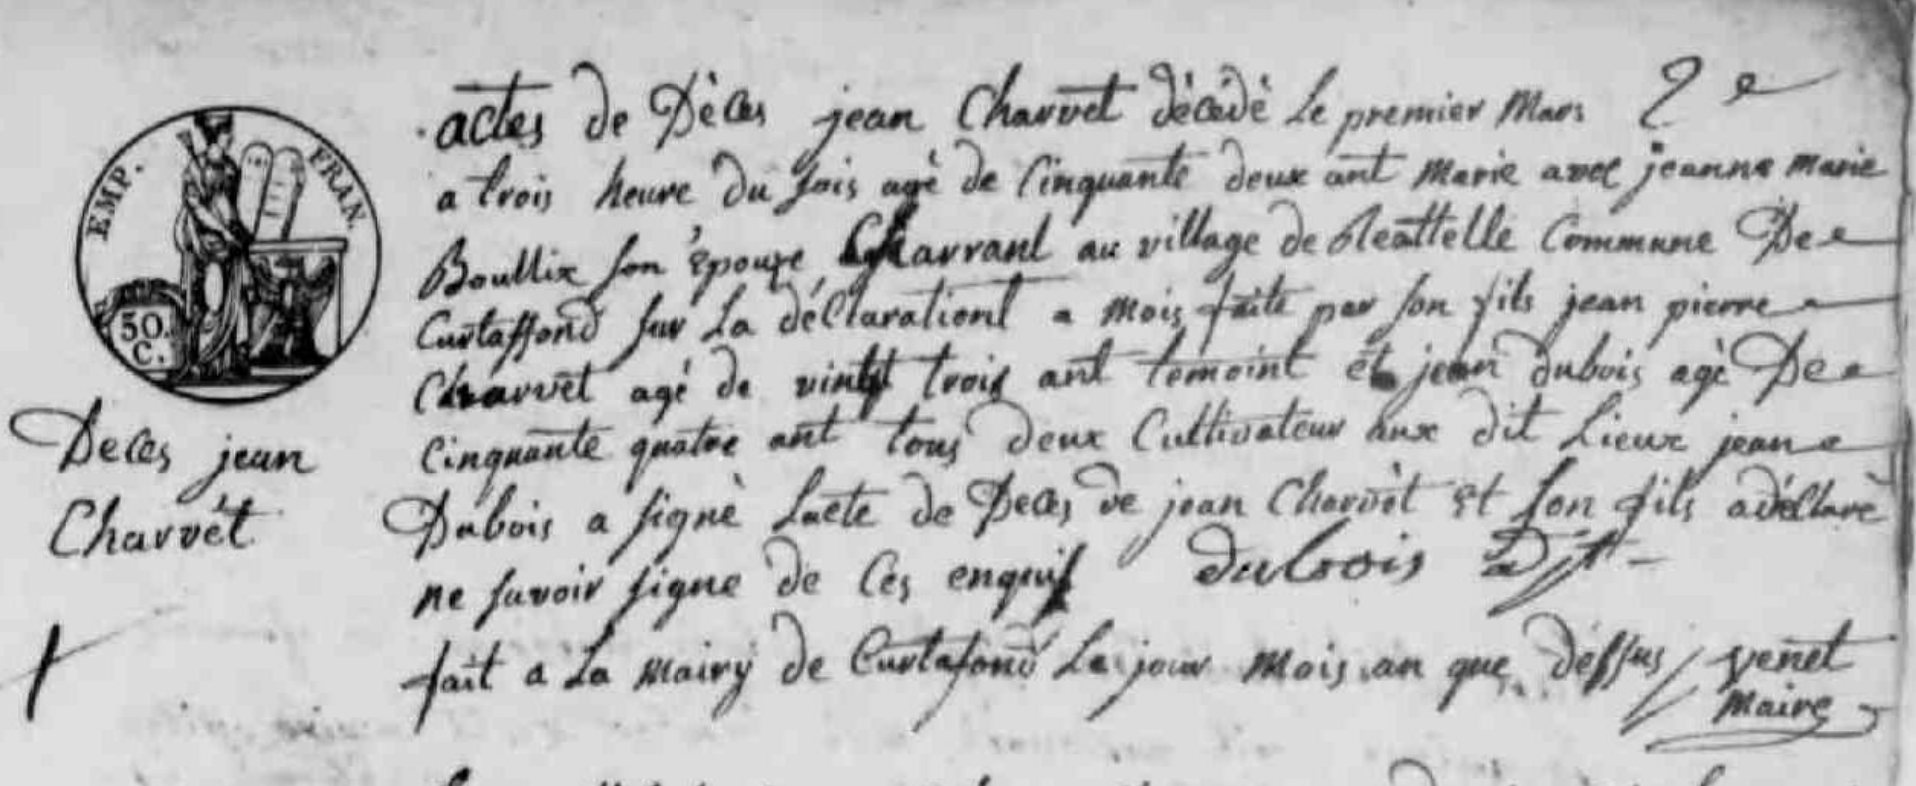 EMP. FRAN.
50.
C.
Deces jean
Charvèt
actes de Dèces jean Charvet dècèdè Le premier Mars 2e
a trois heure du sois agè de Cinquante deux ant marie avec jeanne marie
Boullix son épouze au village de Commune De
Curtaffond sur La déclarationt a mois faite par son fils jean pierre
Charvet agé de vingt trois ant temoint et jean dubois agè De
Cinquante quatre ant tous deux Cultivateur aux dit Lieux jean
Dubois a signè Lacte de Deces de jean Charvèt Et son fils a déclarè
ne savoir signe de Ces enquis dubois
fait a La mairy de Curtafond Le jour mois an que dessus venet
maire